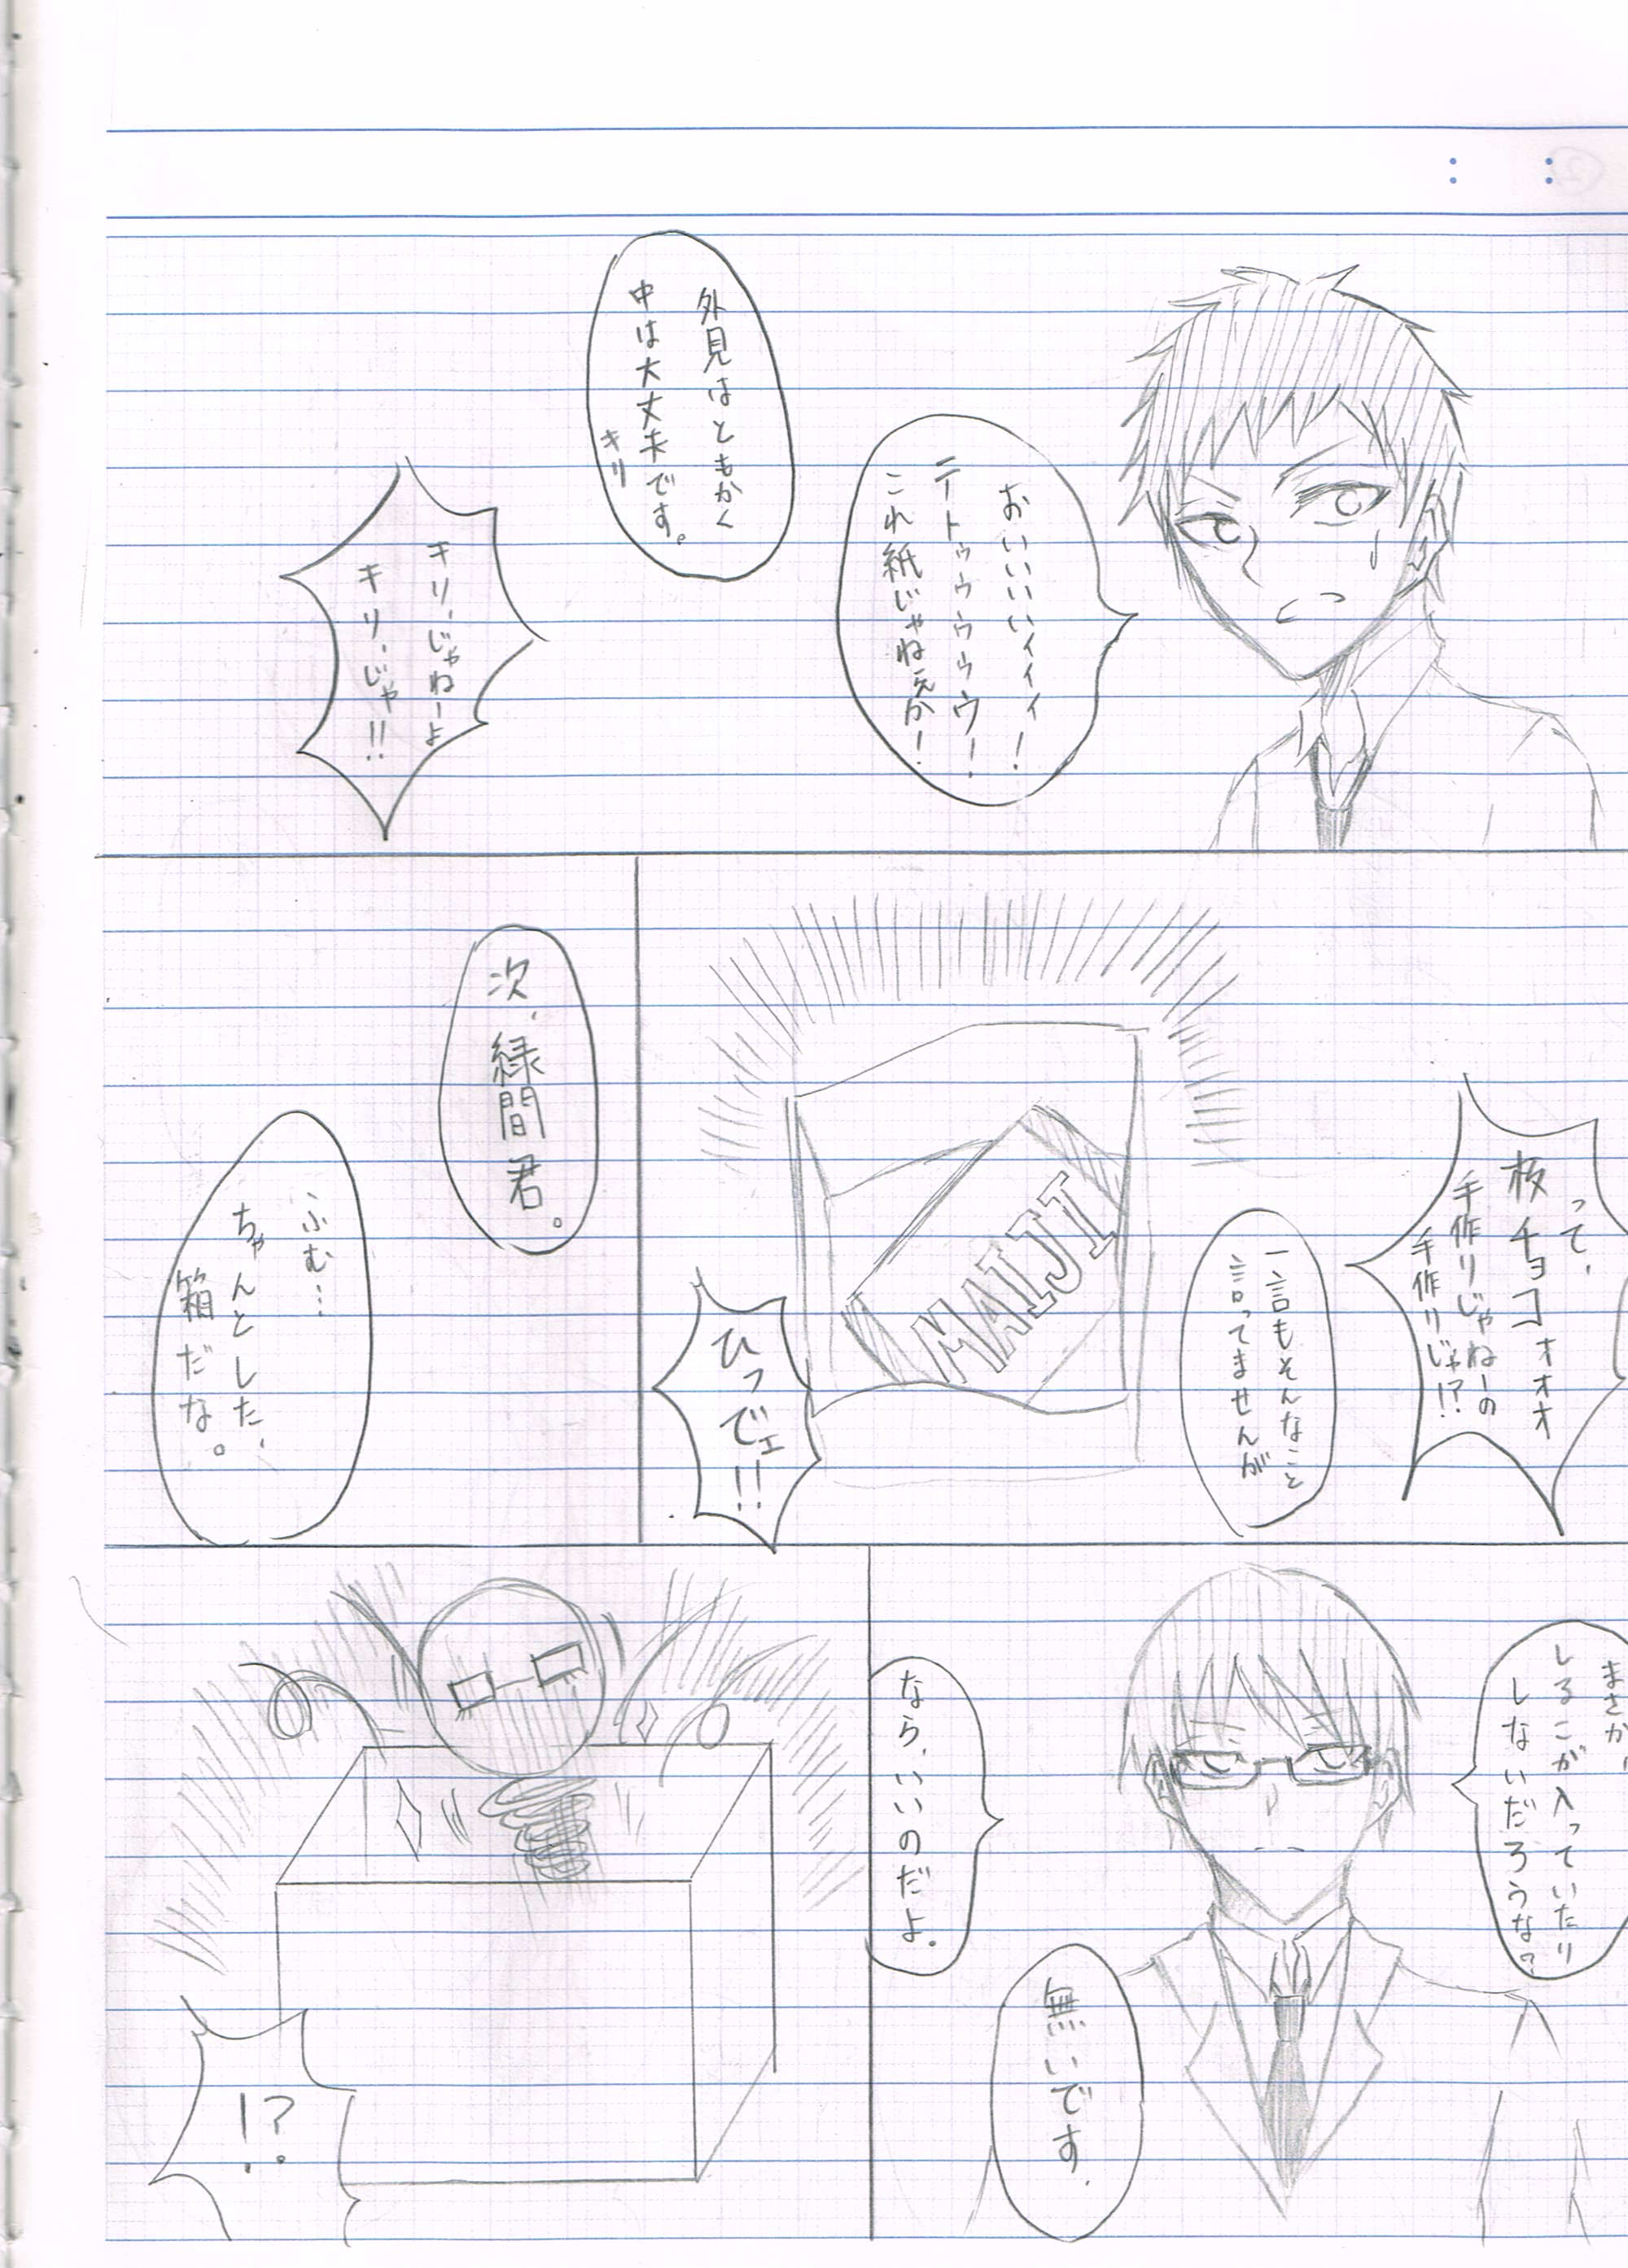 おいいいいィィィ！
テートゥゥゥゥゥウ！
これ紙じゃねぇか！
外見はともかく
中は大丈夫です。
キリ
キリ、じゃねーよ
キリ、じゃ!!
って、
板チョコォォオオ
手作りじゃねーの
手作りじゃ!?
一言もそんなこと
言ってませんが
MAIJI
ひっでェ!!
次、緑間君。
ふむ…
ちゃんとした、
箱だな。
まさか、
しるこが入っていたり
しないだろうな？
無いです。
なら、いいのだよ。
!?